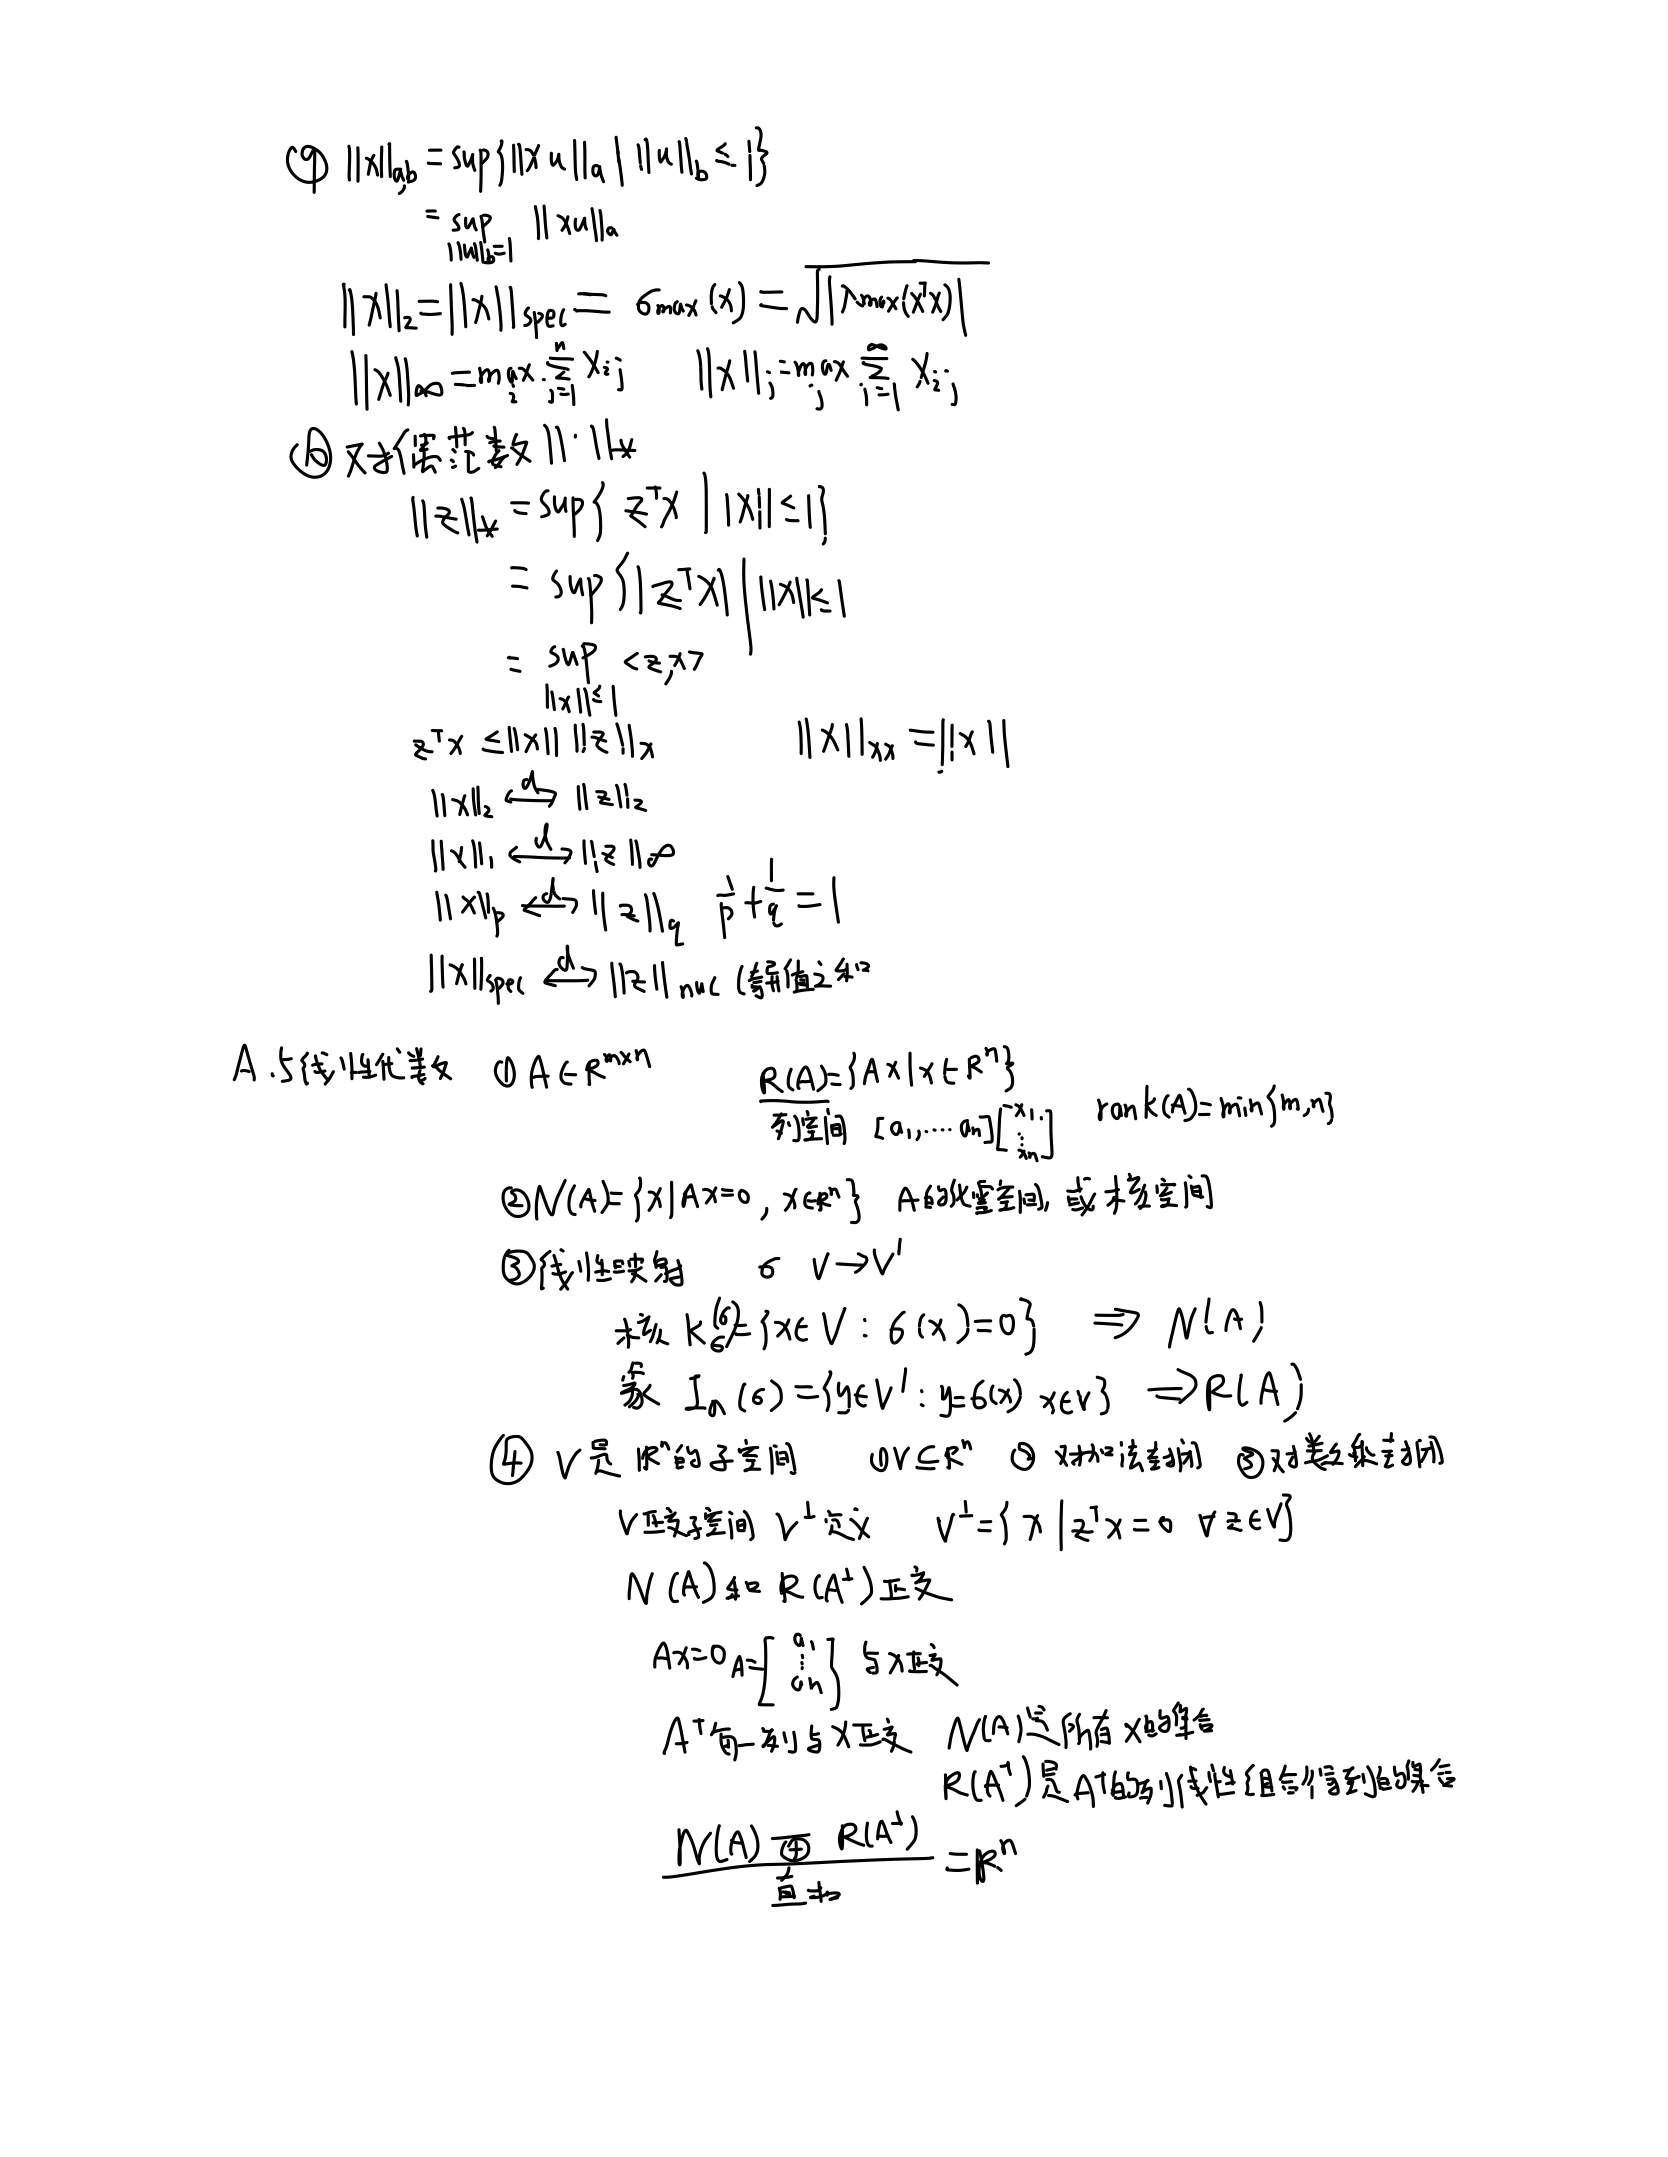 ⑨ ||X||a,b = sup{||Xu||a | ||u||b ≤ 1}
= sup ||Xu||a
||u||b=1
||X||₂ = ||X||spec = σmax(X) = √|λmax(XᵀX)|
||X||∞ = max i Σ j=1 n Xij ||X||j = max j Σ i=1 ∞ Xij
⑩ 对偶范数 ||·||*
||z||* = sup{ zᵀX | ||X|| ≤ 1}
= sup{|zᵀX| | ||X|| ≤ 1
= sup <z,x>
||x|| ≤ 1
zᵀx ≤ ||x|| ||z||x ||X||xx = ||x||
||X||₂ <-d-> ||z||₂
||X||₁ <-d-> ||z||∞
||X||p <-d-> ||z||q 1/p + 1/q = 1
||X||spec <-d-> ||z||nuc (奇异值之和
A.5线性代数 ① A ∈ Rᵐˣⁿ R(A)={Ax|x∈Rⁿ}
列空间 [a₁,····an][x₁ ⋮ xn] rank(A)=min{m,n}
② N(A)={x|Ax=0, x∈Rⁿ} A的化零空间, 或核空间
③ 线性映射 σ V→V'
核 K σ(σ)={x∈V : σ(x)=0} ⇒ N(A)
象 In(σ)={y∈V' : y=σ(x) x∈V} ⇒ R(A)
④ V是 Rⁿ的子空间 ①V⊆Rⁿ ② 对加法封闭 ③ 对数乘封闭
V正交子空间 V⊥ 定义 V⊥={x|zᵀx=0 ∀z∈V}
N(A)和 R(A⊥)正交
Ax=0 A=[a₁ ⋮ an] 与X正交
Aᵀ每一列与X正交 N(A)是所有X的集合
R(Aᵀ)是Aᵀ的列线性组合得到的集合
N(A) ⊕ R(A⊥) = Rⁿ
直和